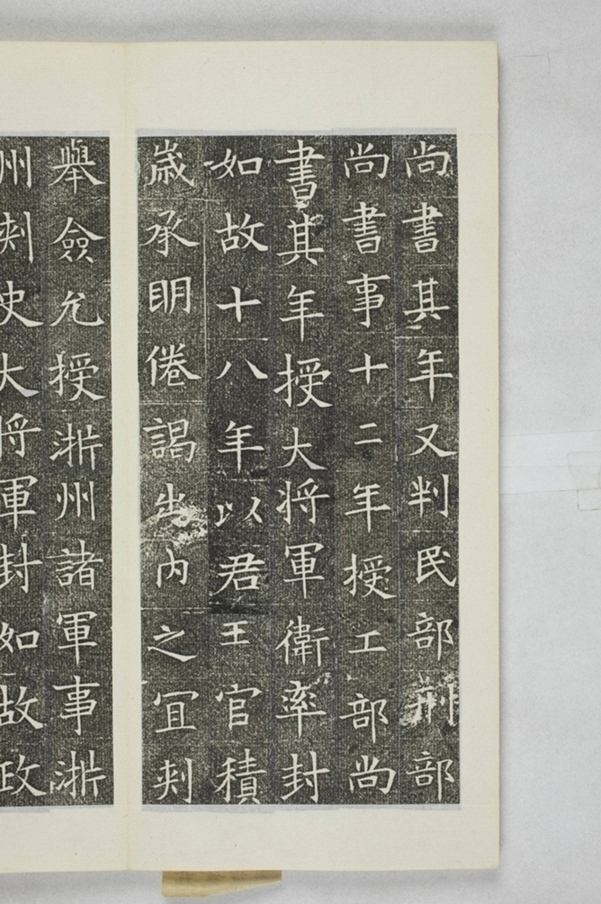 尚書其年又判民部刑部
尚書事十二年授工部尚
書其年授大将軍衛率封
如故十八年以君王官積
歳承明倦謁出内之宜刾
舉僉允授淅州諸軍事淅
州刾史大将軍封如故政